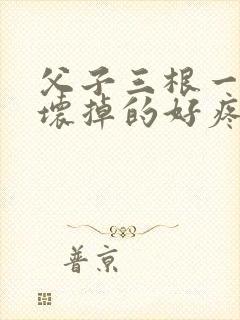 父子三根一
壞掉的好疼
普京